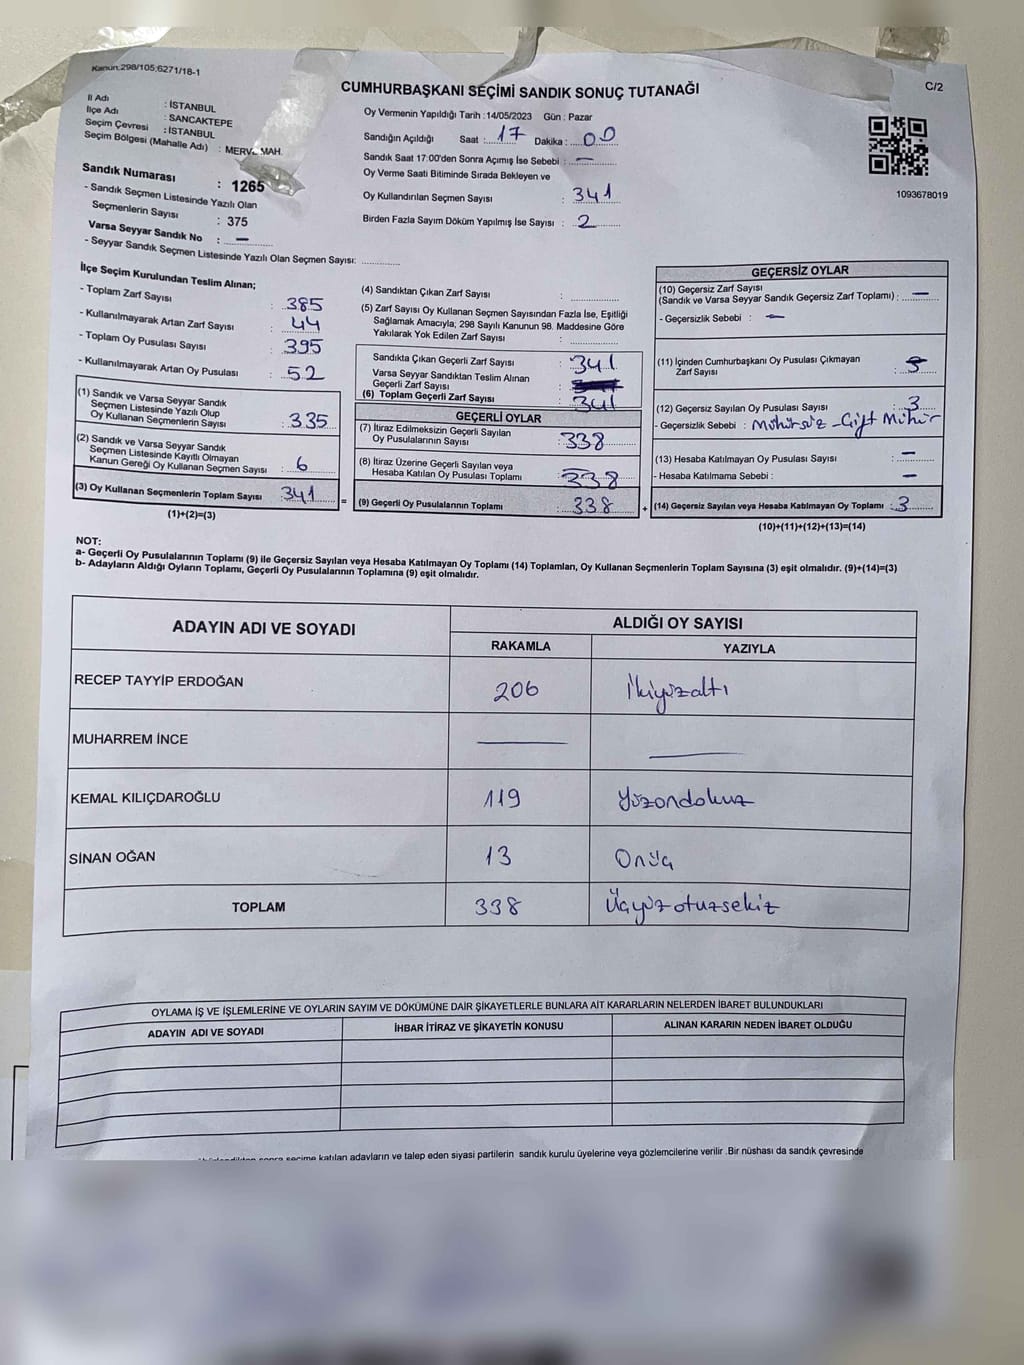 Kanun:298/105;6271/18-1
CUMHURBAŞKANI SEÇİMİ SANDIK SONUÇ TUTANAĞI
C/2
İl Adı : İSTANBUL
İlçe Adı : SANCAKTEPE
Seçim Çevresi : İSTANBUL
Seçim Bölgesi (Mahalle Adı) : MERVE MAH.
Sandık Numarası : 1265
- Sandık Seçmen Listesinde Yazılı Olan
Seçmenlerin Sayısı : 375
Varsa Seyyar Sandık No : —
- Seyyar Sandık Seçmen Listesinde Yazılı Olan Seçmen Sayısı: ............
Oy Vermenin Yapıldığı Tarih : 14/05/2023 Gün : Pazar
Sandığın Açıldığı Saat : 17 Dakika : 00
Sandık Saat 17:00'den Sonra Açımış İse Sebebi : —
Oy Verme Saati Bitiminde Sırada Bekleyen ve
Oy Kullandırılan Seçmen Sayısı : 341
Birden Fazla Sayım Döküm Yapılmış İse Sayısı : 2
1093678019
İlçe Seçim Kurulundan Teslim Alınan;
- Toplam Zarf Sayısı : 385
- Kullanılmayarak Artan Zarf Sayısı : 44
- Toplam Oy Pusulası Sayısı : 395
- Kullanılmayarak Artan Oy Pusulası : 52
(1) Sandık ve Varsa Seyyar Sandık
Seçmen Listesinde Yazılı Olup
Oy Kullanan Seçmenlerin Sayısı : 335
(2) Sandık ve Varsa Seyyar Sandık
Seçmen Listesinde Kayıtlı Olmayan
Kanun Gereği Oy Kullanan Seçmen Sayısı : 6
(3) Oy Kullanan Seçmenlerin Toplam Sayısı : 341
(1)+(2)=(3)
(4) Sandıktan Çıkan Zarf Sayısı : ............
(5) Zarf Sayısı Oy Kullanan Seçmen Sayısından Fazla İse, Eşitliği
Sağlamak Amacıyla; 298 Sayılı Kanunun 98. Maddesine Göre
Yakılarak Yok Edilen Zarf Sayısı : ............
Sandıkta Çıkan Geçerli Zarf Sayısı : 341
Varsa Seyyar Sandıktan Teslim Alınan
Geçerli Zarf Sayısı :
(6) Toplam Geçerli Zarf Sayısı : 341
=
GEÇERLİ OYLAR
(7) İtiraz Edilmeksizin Geçerli Sayılan
Oy Pusulalarının Sayısı : 338
(8) İtiraz Üzerine Geçerli Sayılan veya
Hesaba Katılan Oy Pusulası Toplamı : 338
(9) Geçerli Oy Pusulalarının Toplamı : 338
+
GEÇERSİZ OYLAR
(10) Geçersiz Zarf Sayısı
(Sandık ve Varsa Seyyar Sandık Geçersiz Zarf Toplamı) : —
- Geçersizlik Sebebi : —
(11) İçinden Cumhurbaşkanı Oy Pusulası Çıkmayan
Zarf Sayısı :
(12) Geçersiz Sayılan Oy Pusulası Sayısı : 3
- Geçersizlik Sebebi : Mühürsüz - Çift Mühür
(13) Hesaba Katılmayan Oy Pusulası Sayısı : —
- Hesaba Katılmama Sebebi : —
(14) Geçersiz Sayılan veya Hesaba Katılmayan Oy Toplamı : 3
(10)+(11)+(12)+(13)=(14)
NOT:
a- Geçerli Oy Pusulalarının Toplamı (9) ile Geçersiz Sayılan veya Hesaba Katılmayan Oy Toplamı (14) Toplamları, Oy Kullanan Seçmenlerin Toplam Sayısına (3) eşit olmalıdır. (9)+(14)=(3)
b- Adayların Aldığı Oyların Toplamı, Geçerli Oy Pusulalarının Toplamına (9) eşit olmalıdır.
ADAYIN ADI VE SOYADI
ALDIĞI OY SAYISI
RAKAMLA YAZIYLA
RECEP TAYYİP ERDOĞAN 206 İkiyüzaltı
MUHARREM İNCE — —
KEMAL KILIÇDAROĞLU 119 Yüzondokuz
SİNAN OĞAN 13 Onüç
TOPLAM 338 Üçyüzotuzsekiz
OYLAMA İŞ VE İŞLEMLERİNE VE OYLARIN SAYIM VE DÖKÜMÜNE DAİR ŞİKAYETLERLE BUNLARA AİT KARARLARIN NELERDEN İBARET BULUNDUKLARI
ADAYIN ADI VE SOYADI İHBAR İTİRAZ VE ŞİKAYETİN KONUSU ALINAN KARARIN NEDEN İBARET OLDUĞU
sonra seçime katılan adayların ve talep eden siyasi partilerin sandık kurulu üyelerine veya gözlemcilerine verilir .Bir nüshası da sandık çevresinde